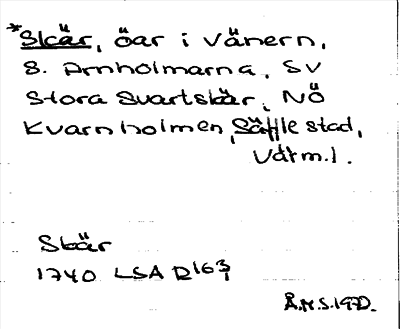 *Skär, öar i Vänern,
S. Arnholmarna, SV
Stora Svartskär, NÖ
Kvarnholmen, Säffle stad,
Värml.
Skär
1740 LSA R163
Å.M.S. 1970.